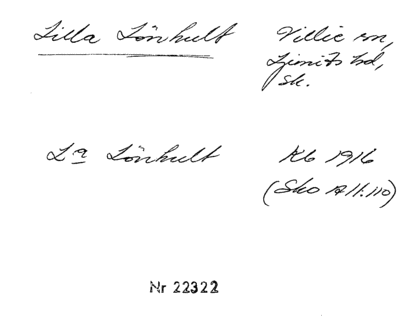 Lilla Lönhult Villie sn,
Ljunits hd,
Sk.
La Lönhult Kb 1916
(Sko A II:110)
Nr 22322